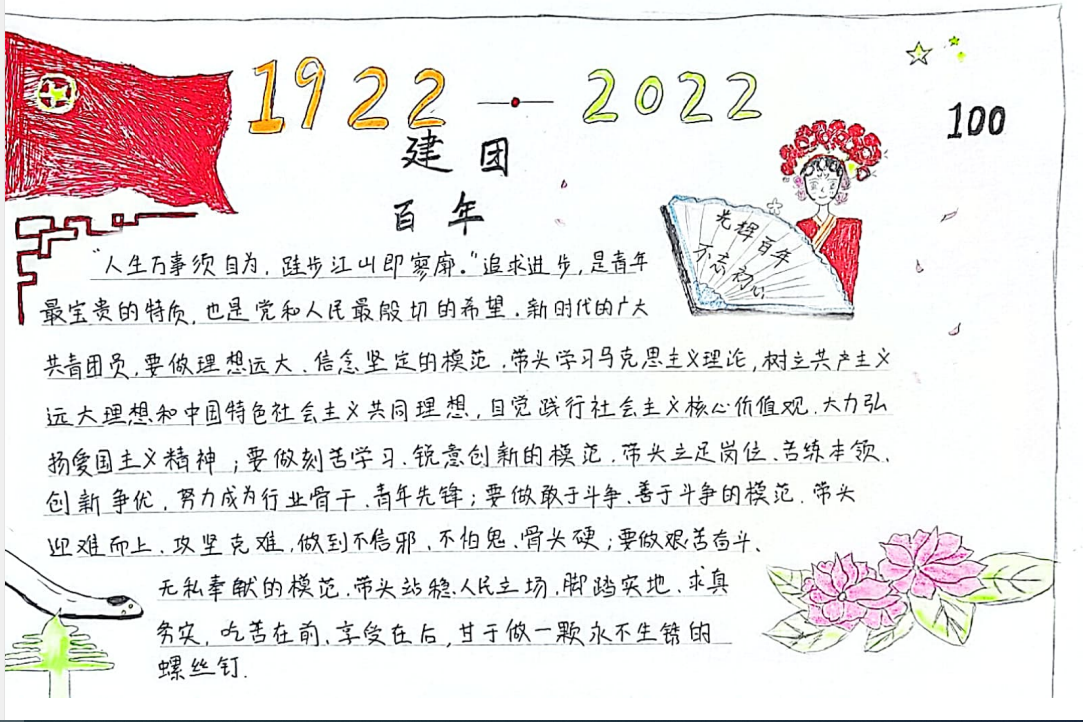 1922—2022
100
建团
百年
光辉百年
不忘初心
“人生万事须自为，跬步江山即寥廓。”追求进步，是青年
最宝贵的特质，也是党和人民最殷切的希望．新时代的广大
共青团员，要做理想远大、信念坚定的模范．带头学习马克思主义理论，树立共产主义
远大理想和中国特色社会主义共同理想，自觉践行社会主义核心价值观．大力弘
扬爱国主义精神；要做刻苦学习、锐意创新的模范．带头立足岗位、苦练本领、
创新争优，努力成为行业骨干、青年先锋；要做敢于斗争、善于斗争的模范．带头
迎难而上、攻坚克难，做到不信邪、不怕鬼、骨头硬；要做艰苦奋斗、
无私奉献的模范．带头站稳人民立场，脚踏实地、求真
务实，吃苦在前、享受在后，甘于做一颗永不生锈的
螺丝钉．